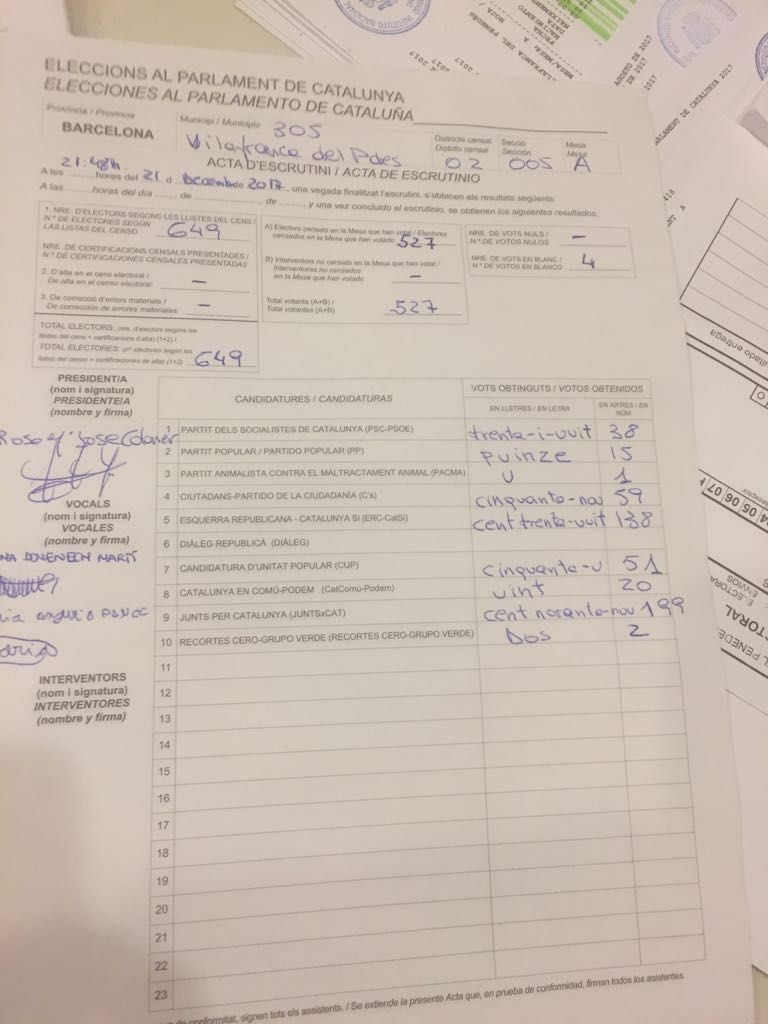 ELECCIONS AL PARLAMENT DE CATALUNYA
ELECCIONES AL PARLAMENTO DE CATALUÑA
Província / Provincia
BARCELONA
Municipi / Municipio 305
Vilafranca del Pdes
Districte censal
Distrito censal
02
Secció
Sección
005
Mesa
Mesa
A
ACTA D'ESCRUTINI / ACTA DE ESCRUTINIO
21:48h
A les ......... hores del 21 d Decembre de 2017, una vegada finalitzat l'escrutini, s'obtenen els resultats següents:
A las ......... horas del día ....... de .................... de ........., y una vez concluido el escrutinio, se obtienen los siguientes resultados:
1. NRE. D'ELECTORS SEGONS LES LLISTES DEL CENS /
N.º DE ELECTORES SEGÚN
LAS LISTAS DEL CENSO 649
NRE. DE CERTIFICACIONS CENSALS PRESENTADES /
N.º DE CERTIFICACIONES CENSALES PRESENTADAS
2. D'alta en el cens electoral /
De alta en el censo electoral: –
3. De correcció d'errors materials /
De corrección de errores materiales: –
TOTAL ELECTORS: (nre. d'electors segons les
llistes del cens + certificacions d'alta) (1+2) /
TOTAL ELECTORES: (nº electores según las
listas del censo + certificaciones de alta) (1+2) 649
A) Electors censats en la Mesa que han votat / Electores
censados en la Mesa que han votado 527
B) Interventors no censats en la Mesa que han votat /
Interventores no censados
en la Mesa que han votado –
Total votants (A+B) /
Total votantes (A+B) 527
NRE. DE VOTS NULS /
N.º DE VOTOS NULOS –
NRE. DE VOTS EN BLANC /
N.º DE VOTOS EN BLANCO 4
PRESIDENT/A
(nom i signatura)
PRESIDENTE/A
(nombre y firma)
VOCALS
(nom i signatura)
VOCALES
(nombre y firma)
INTERVENTORS
(nom i signatura)
INTERVENTORES
(nombre y firma)
CANDIDATURES / CANDIDATURAS
VOTS OBTINGUTS / VOTOS OBTENIDOS
EN LLETRES / EN LETRA
EN XIFRES / EN NÚM.
1 PARTIT DELS SOCIALISTES DE CATALUNYA (PSC-PSOE) trenta-i-vuit 38
2 PARTIT POPULAR / PARTIDO POPULAR (PP) quinze 15
3 PARTIT ANIMALISTA CONTRA EL MALTRACTAMENT ANIMAL (PACMA) U 1
4 CIUTADANS-PARTIDO DE LA CIUDADANÍA (C's) cinquanta-nou 59
5 ESQUERRA REPUBLICANA - CATALUNYA SÍ (ERC-CatSí) cent trenta-vuit 138
6 DIÀLEG REPUBLICÀ (DIÀLEG)
7 CANDIDATURA D'UNITAT POPULAR (CUP) cinquanta-u 51
8 CATALUNYA EN COMÚ-PODEM (CatComú-Podem) vint 20
9 JUNTS PER CATALUNYA (JUNTSxCAT) cent noranta-nou 199
10 RECORTES CERO-GRUPO VERDE (RECORTES CERO-GRUPO VERDE) Dos 2
11
12
13
14
15
16
17
18
19
20
21
22
23
de conformitat, signen tots els assistents. / Se extiende la presente Acta que, en prueba de conformidad, firman todos los asistentes.
AGOSTO DE 2017
PARLAMENT DE CATALUNYA 2017